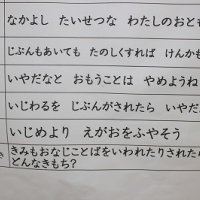 なかよし　たいせつな　わたしのおとも
じぶんもあいても　たのしくすれば　けんかも
いやだなと　おもうことは　やめようね
いじわるを　じぶんがされたら　いやだ
いじめより　えがおをふやそう
きみもおなじことばをいわれたりされたら
どんなきもち？